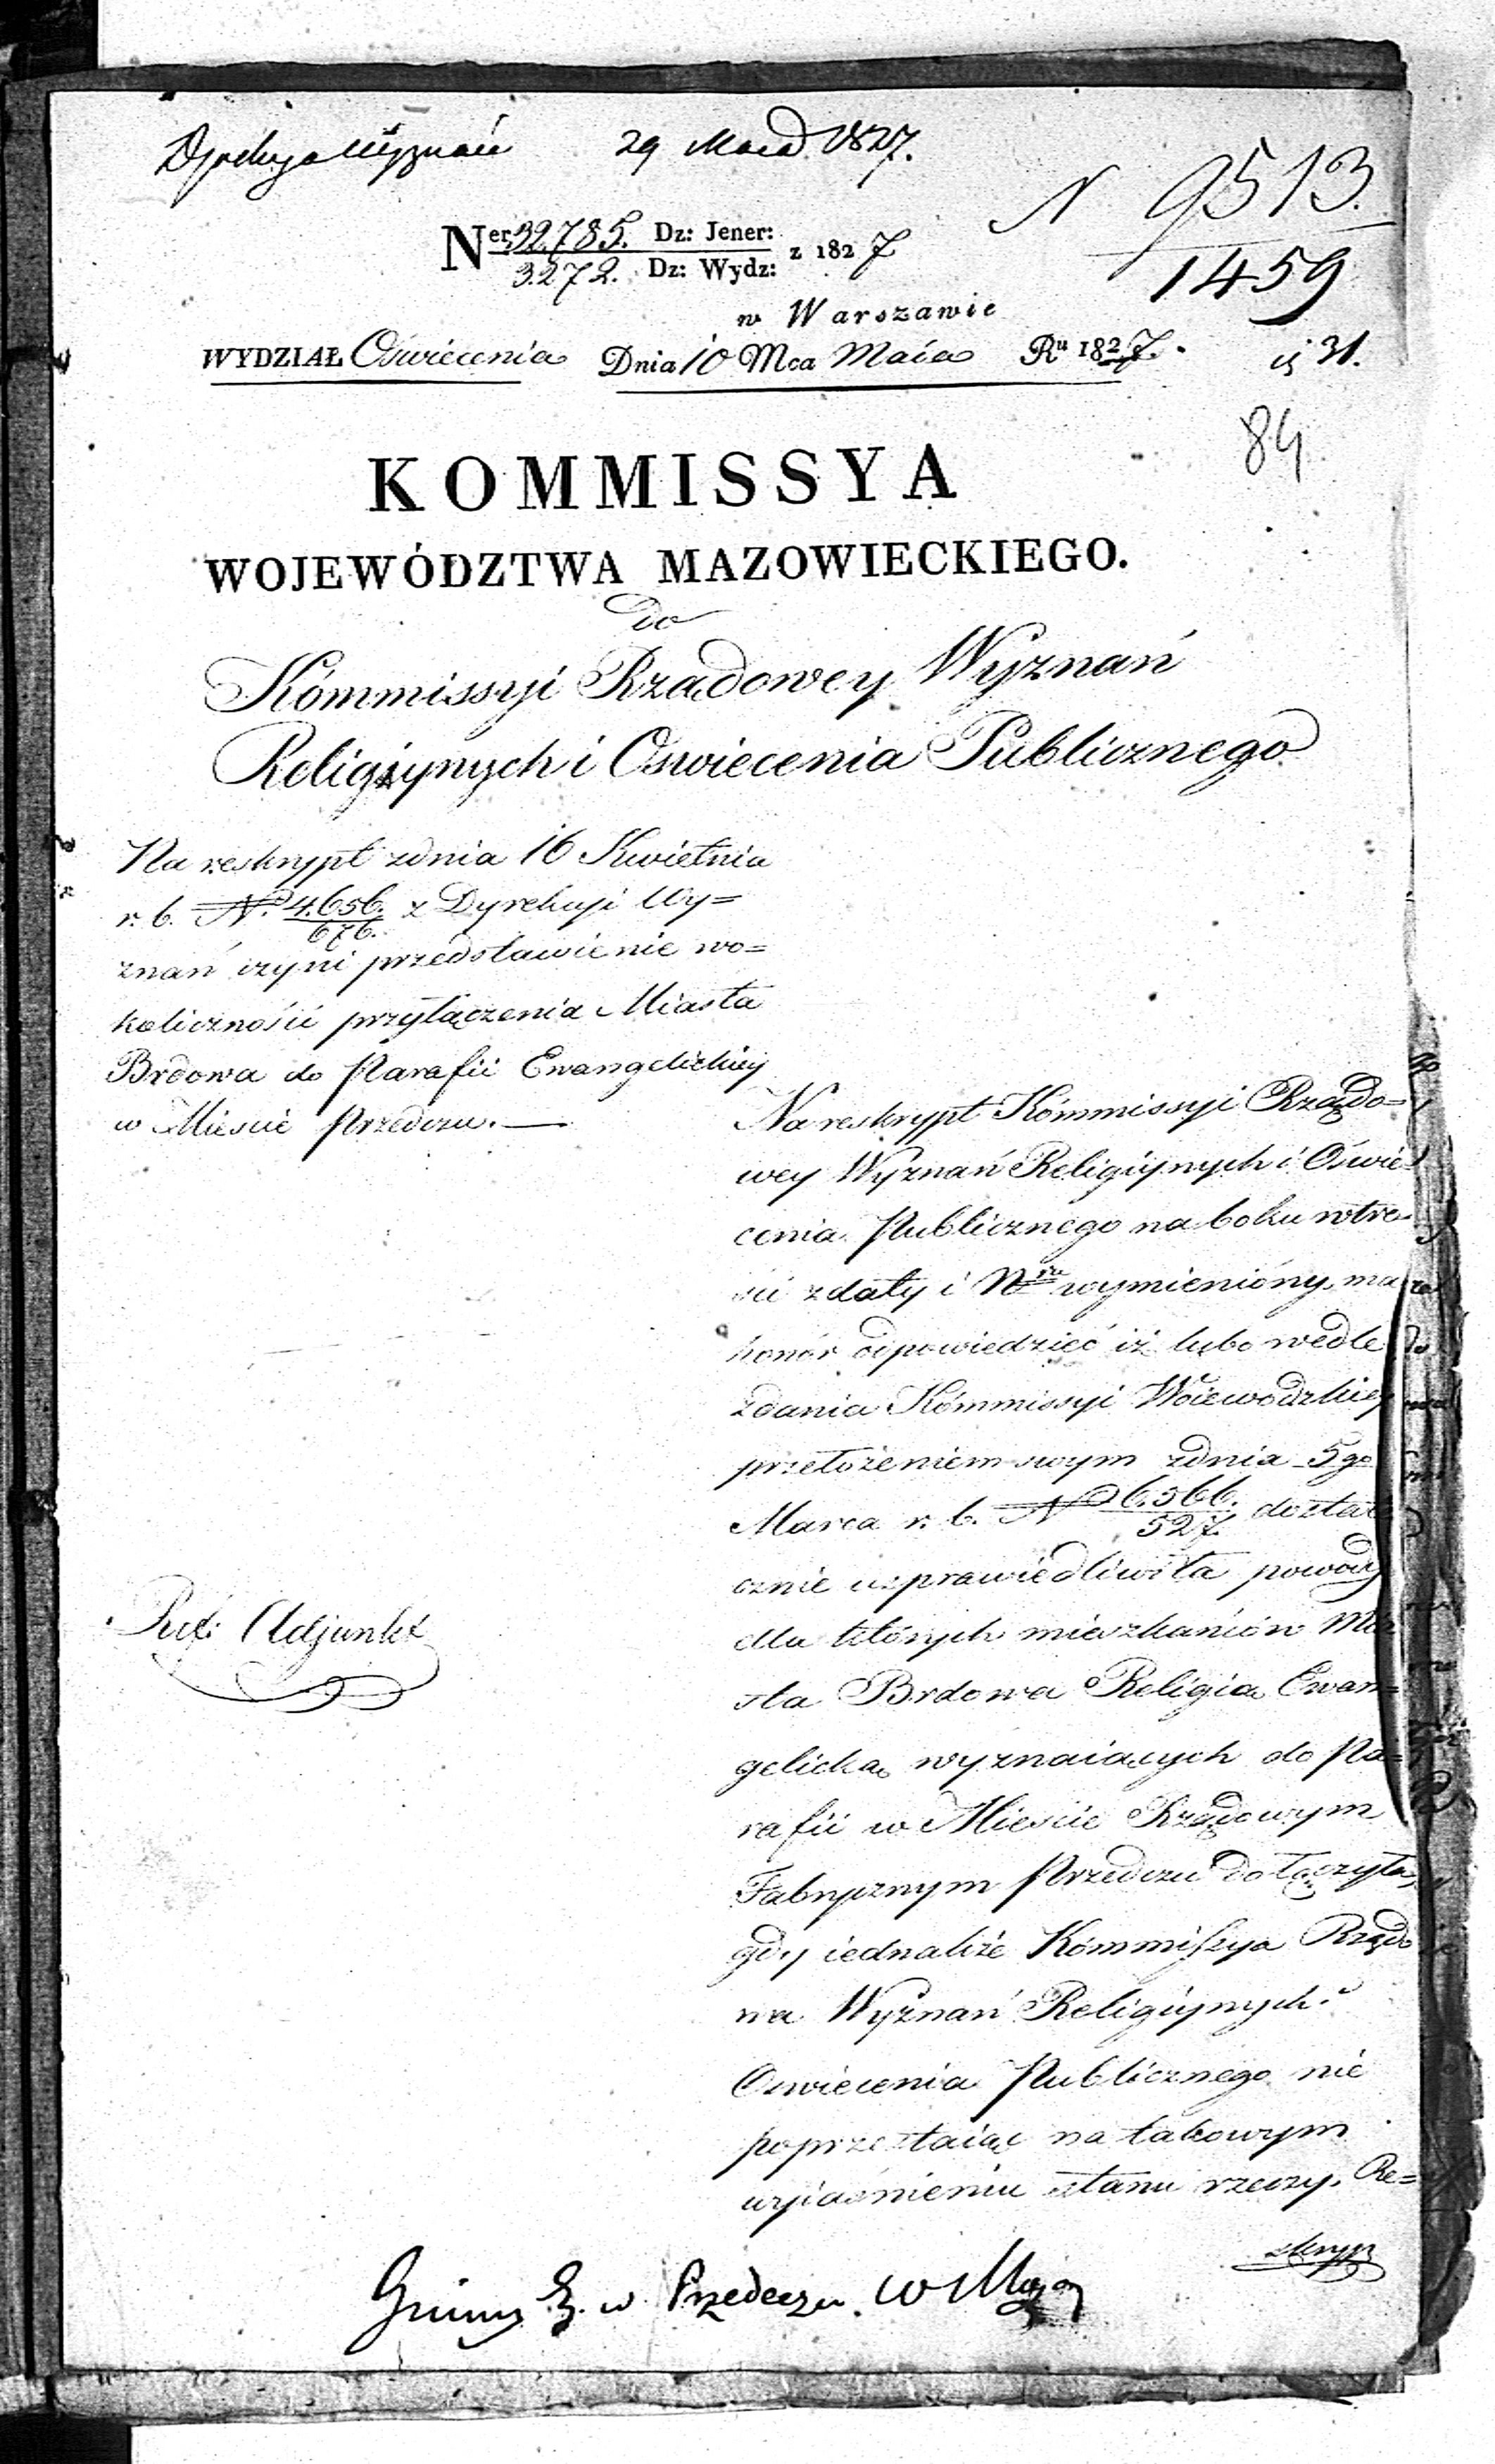 Dyrekcya Wyznań 29 Maia 1827.
N 9513.
1459
N<sup>er</sup> 32.785. Dz: Jener:
3.272. Dz: Wydz: z 1827
w Warszawie
WYDZIAŁ Oświecenia Dnia 10 Mca Maia Ru 1827.
31.
84
KOMMISSYA
WOJEWÓDZTWA MAZOWIECKIEGO.
do
Kómmissyi Rządowey Wyznań
Religiynych i Oswiecenia Publicznego
Na reskrypt zdnia 16 Kwietnia
r. b. No. 4.656. z Dyrekcyi Wy=
676.
znań czyni przedstawienie wo=
koliczności przyłączenia Miasta
Brdowa do Parafii Ewangelickiey
w Miescie Przedczu. —
Na reskrypt Kómmissyi Rządo=
wey Wyznań Religiynych i Oświe=
cenia Publicznego na boku wtre=
ści zdaty i Nru wymieniony, ma
honór odpowiedzieć iż lubo wedle
zdania Kómmissyi Woiewodzkiey
przełożeniem swym zdnia 5go
Marca r. b. No 6.566. dostate
527.
cznie usprawiedliwiła powody
dla których mieszkańców Mia
sta Brdowa Religią Ewan=
gelicką wyznaiących do Pa=
rafii w Mieście Rządowym
Fabrycznym Przedczu dołączyła,
gdy iednakże Kómmissya Rządo
wa Wyznań Religiynych i
Oswiecenia Publicznego nie
poprzestaiąc na takowym
wyiaśnieniu stanu rzeczy, Re=
skryp
Ref: Adjunkt
Gminy E. w Przedeczu. W Maz